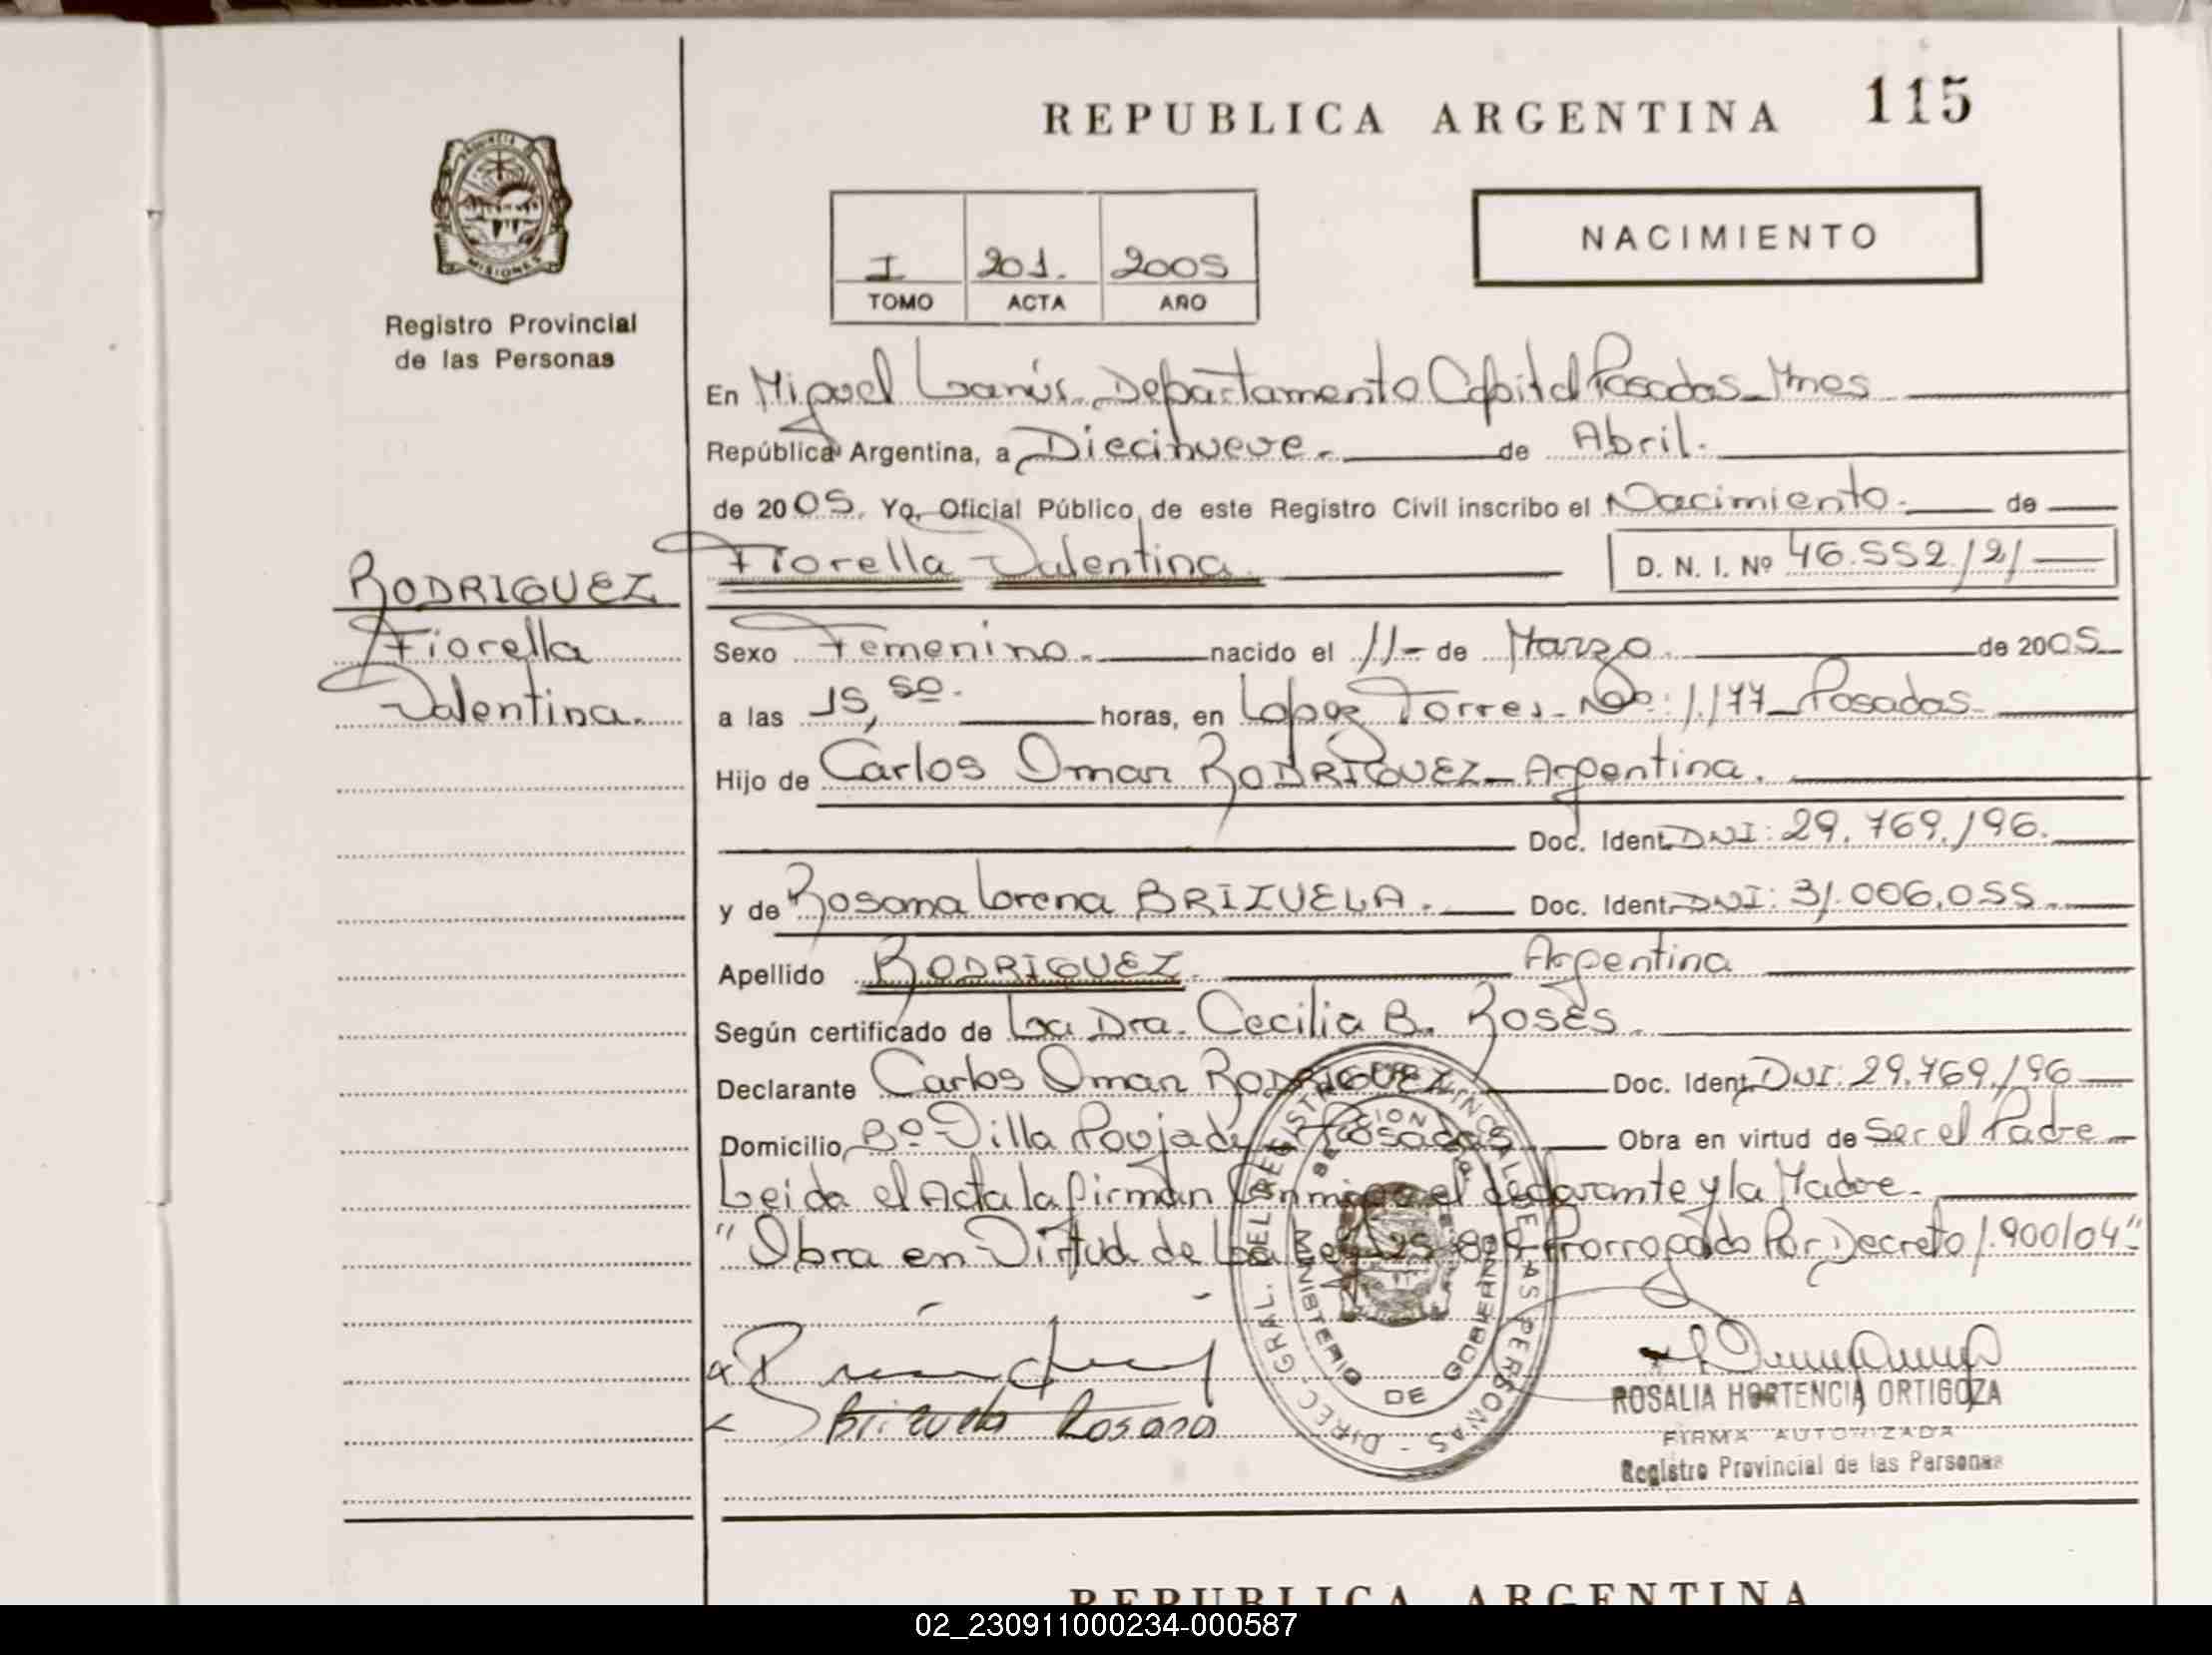 REPUBLICA ARGENTINA 115
PROVINCIA DE
MISIONES
Registro Provincial
de las Personas
NACIMIENTO
I 201. 2005
TOMO ACTA AÑO
En Miguel Lanús. Departamento Capital Posadas_Mnes
República Argentina, a Diecinueve. de Abril.
de 2005. Yo, Oficial Público, de este Registro Civil inscribo el Nacimiento. de
RODRIGUEZ Fiorella Valentina D. N. I. Nº 46.552.121
Fiorella
Valentina.
Sexo Femenino. nacido el 11- de Marzo. de 2005
a las 15,50. horas, en Lopez Torres. Nº: 1.177_Posadas
Hijo de Carlos Omar RODRIGUEZ_Argentina.
Doc. Ident. DNI: 29.769.196.
y de Rosana Lorena BRIZUELA. Doc. Ident. DNI: 31.006.055.
Apellido RODRIGUEZ. Argentina
Según certificado de La Dra. Cecilia B. Roses.
Declarante Carlos Omar RODRIGUEZ Doc. Ident. DNI: 29.769.196
Domicilio Bº Villa Poujade Posadas Obra en virtud de Ser el Padre
Leida el Acta la firman Conmigo el declarante y la Madre.
"Obra en Virtud de La Ley 25.819 Prorrogado Por Decreto 1.900/04"
Brizuela Rosana
DIREC. GRAL. DEL REGISTRO PROVINCIAL DE LAS PERSONAS
MINISTERIO DE GOBIERNO
ROSALIA HORTENCIA ORTIGOZA
FIRMA AUTORIZADA
Registro Provincial de las Personas
REPUBLICA ARGENTINA
02_230911000234-000587